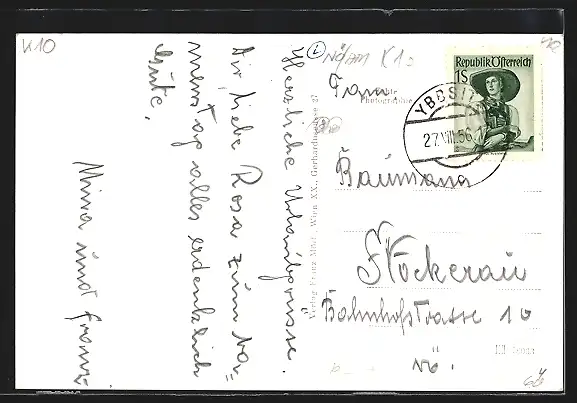 K10
Nö/Am K10
Herzliche Urlaubgrüsse.
Dir liebe Rosa zum Na=
menstag alles erdenklich
Gute,
Mina und Franz
Verlag Franz Mörtl, Wien XX., Gerhardusgasse 27
Photographie
Republik Österreich
1S
YBBSI
27.VIII.56
Fam
Baumann
Stockerau
Bahnhofstrasse 10
NÖ.